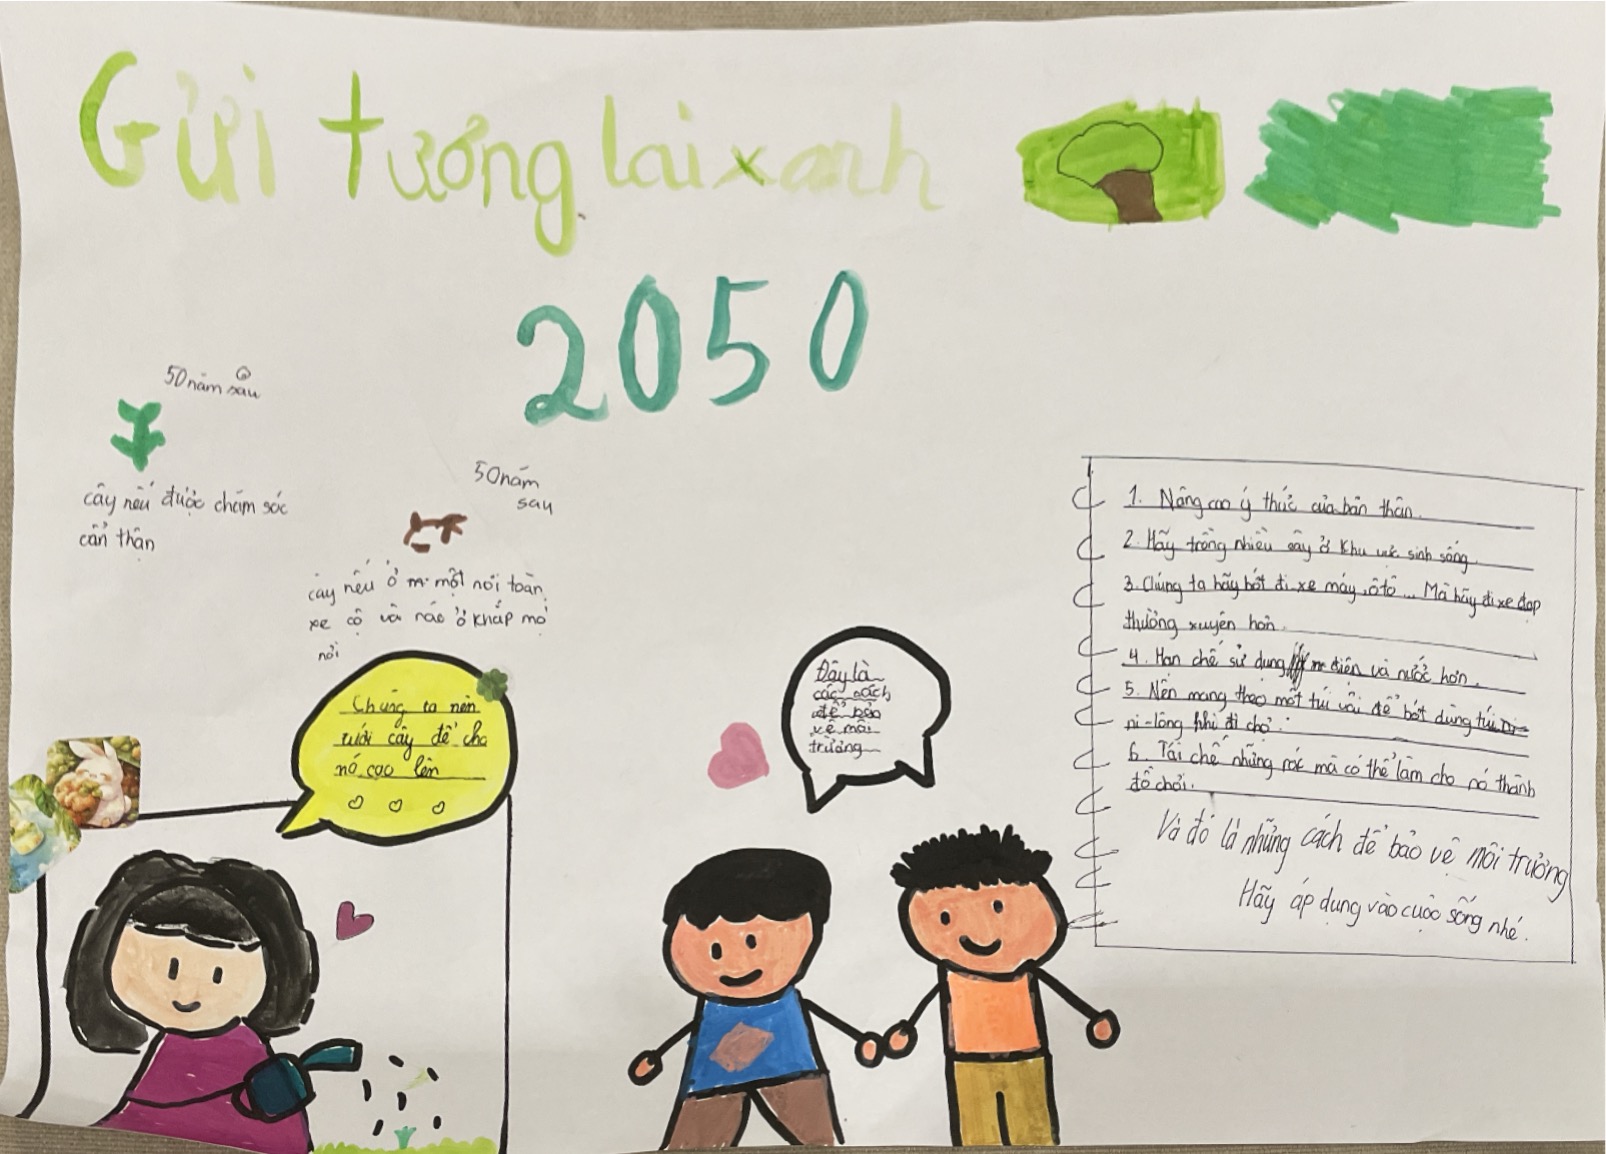 Gửi tương lai xanh
2050
50 năm sau
cây nếu được chăm sóc
cẩn thận
50 năm
sau
cây nếu ở một nơi toàn
xe cộ và rác ở khắp mọ
nơi
Chúng ta nên
tưới cây để cho
nó cao lên
Đây là
các cách
để bảo
vệ môi
trường
1. Nâng cao ý thức của bản thân.
2. Hãy trồng nhiều cây ở khu vực sinh sống.
3. Chúng ta hãy bớt đi xe máy, ôtô... Mà hãy đi xe đạp
thường xuyên hơn.
4. Hạn chế sử dụng điện và nước hơn.
5. Nên mang theo một túi vải để bớt dùng túi
ni-lông khi đi chợ.
6. Tái chế những rác mà có thể làm cho nó thành
đồ chơi.
Và đó là những cách để bảo vệ môi trường
Hãy áp dụng vào cuộc sống nhé.